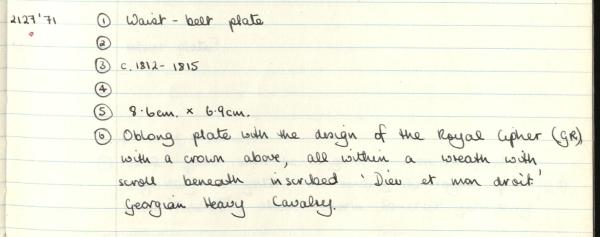 2127'71 ① Waist-belt plate
②
③ c. 1812-1815
④
⑤ 8.6cm. x 6.9cm.
⑥ Oblong plate with the design of the Royal Cipher (GR)
with a crown above, all within a wreath with
scroll beneath inscribed 'Dieu et mon droit.'
Georgian Heavy Cavalry.